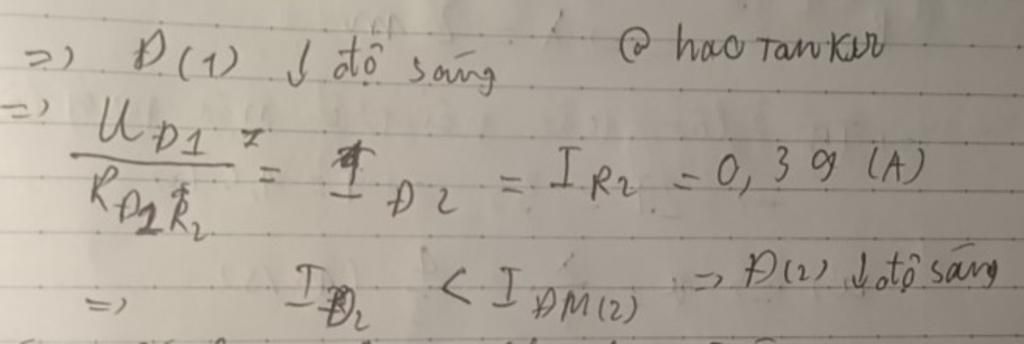 => Đ(1) ↓ độ sáng @ haotankur
=> U_Đ1 / R_Đ2R_2 = I_Đ2 = I_R2 = 0,39 (A)
=> I_Đ2 < I_ĐM(2) => Đ(2) ↓ độ sáng